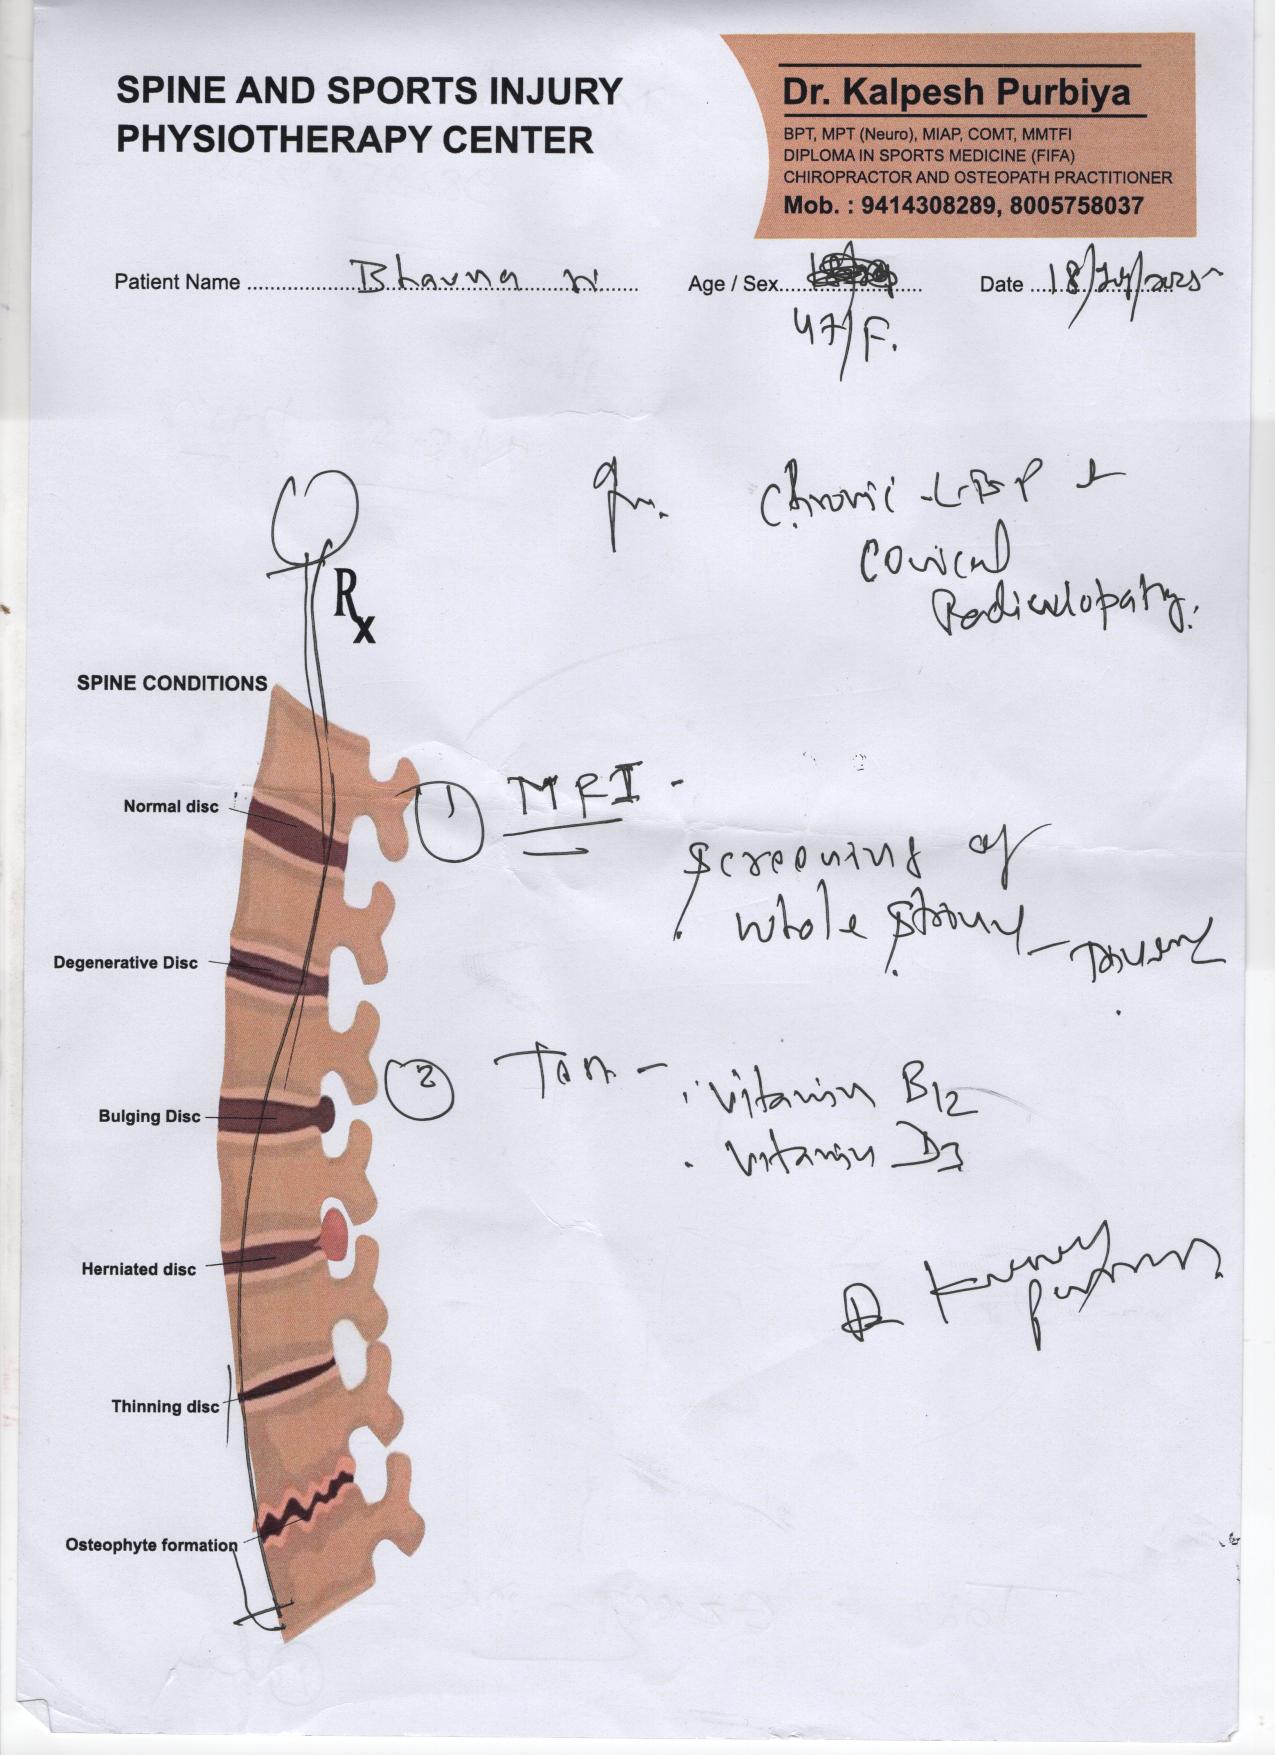 SPINE AND SPORTS INJURY
PHYSIOTHERAPY CENTER
Dr. Kalpesh Purbiya
BPT, MPT (Neuro), MIAP, COMT, MMTFI
DIPLOMA IN SPORTS MEDICINE (FIFA)
CHIROPRACTOR AND OSTEOPATH PRACTITIONER
Mob. : 9414308289, 8005758037
Patient Name Bhavna
Age / Sex
Date 18/
47/F.
Chronic LBP
Radiculopathy.
Rx
SPINE CONDITIONS
Normal disc
1 MRI -
screening of
whole
Degenerative Disc
2
Vitamin B12
Vitamin D3
Bulging Disc
Herniated disc
Thinning disc
Osteophyte formation